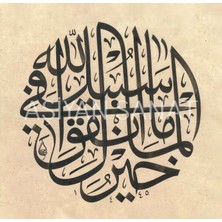 خير المال ما انفق في سبيل الله
ASIYAN SANAT